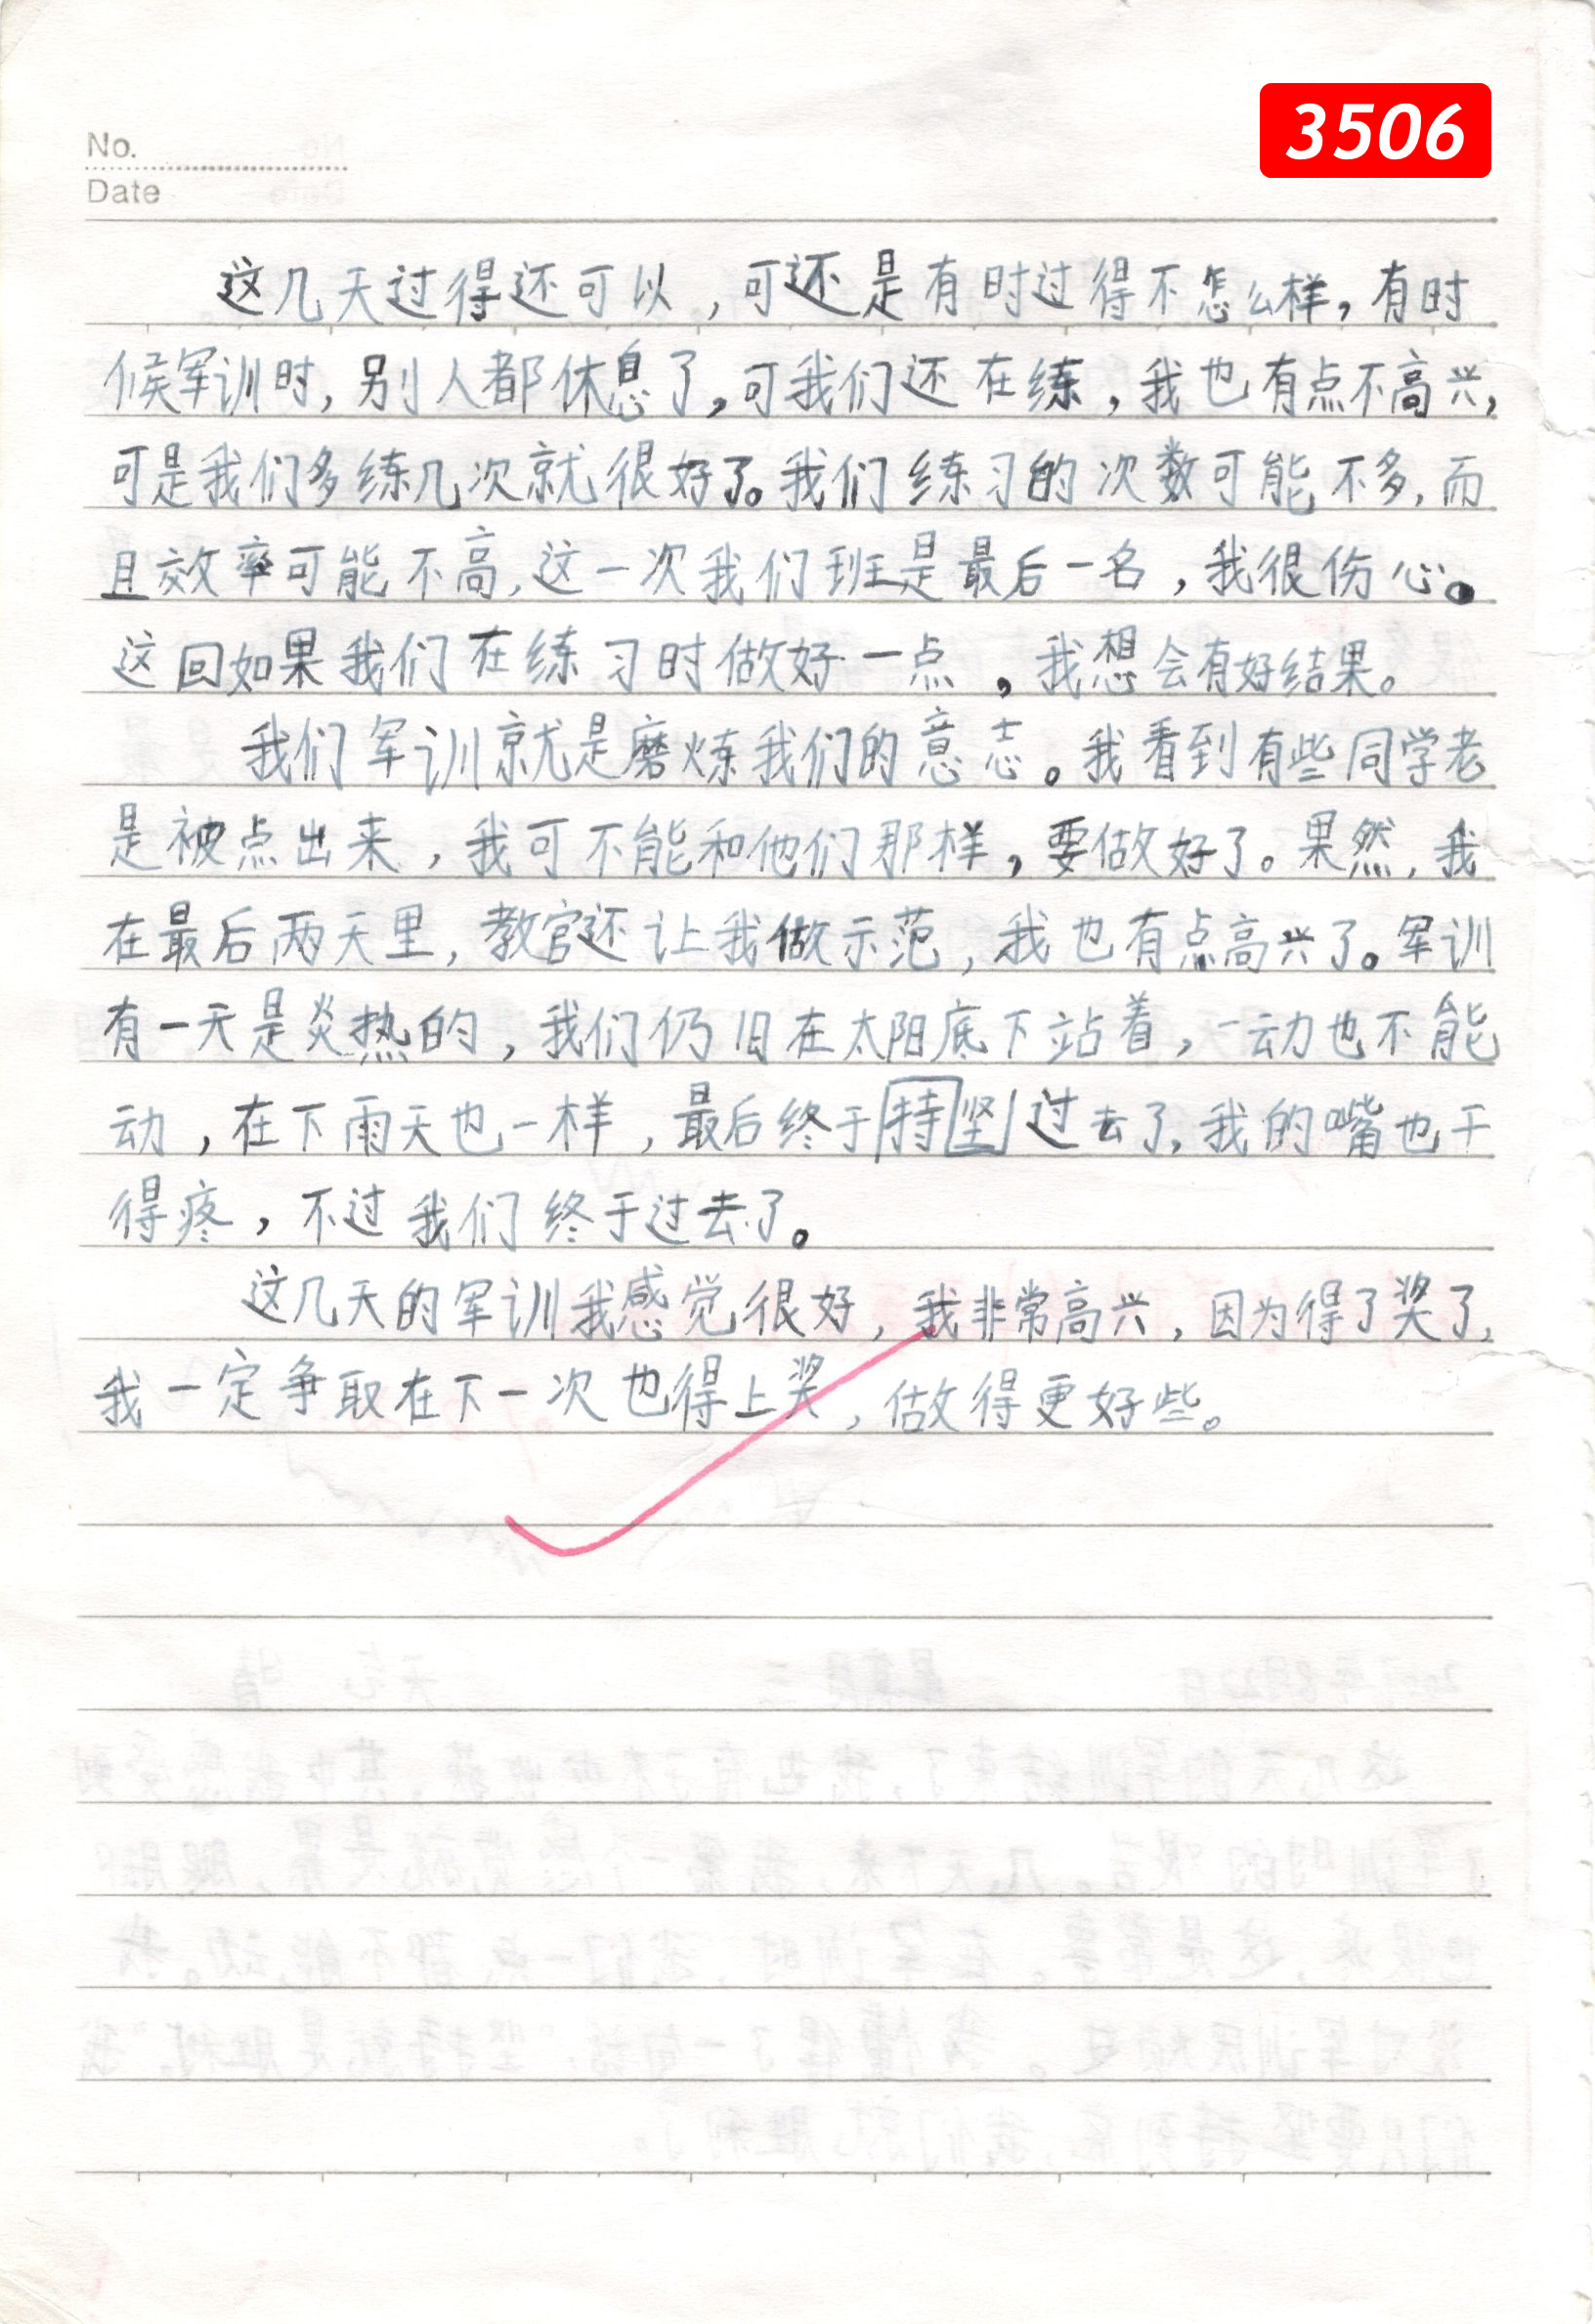 3506
No.
Date
这几天过得还可以，可还是有时过得不怎么样，有时
候军训时，别人都休息了，可我们还在练，我也有点不高兴，
可是我们多练几次就很好了。我们练习的次数可能不多，而
且效率可能不高，这一次我们班是最后一名，我很伤心。
这回如果我们在练习时做好一点，我想会有好结果。
我们军训就是磨炼我们的意志。我看到有些同学老
是被点出来，我可不能和他们那样，要做好了。果然，我
在最后两天里，教官还让我做示范，我也有点高兴了。军训
有一天是炎热的，我们仍旧在太阳底下站着，一动也不能
动，在下雨天也一样，最后终于持坚过去了，我的嘴也干
得疼，不过我们终于过去了。
这几天的军训我感觉很好，我非常高兴，因为得了奖了，
我一定争取在下一次也得上奖，做得更好些。